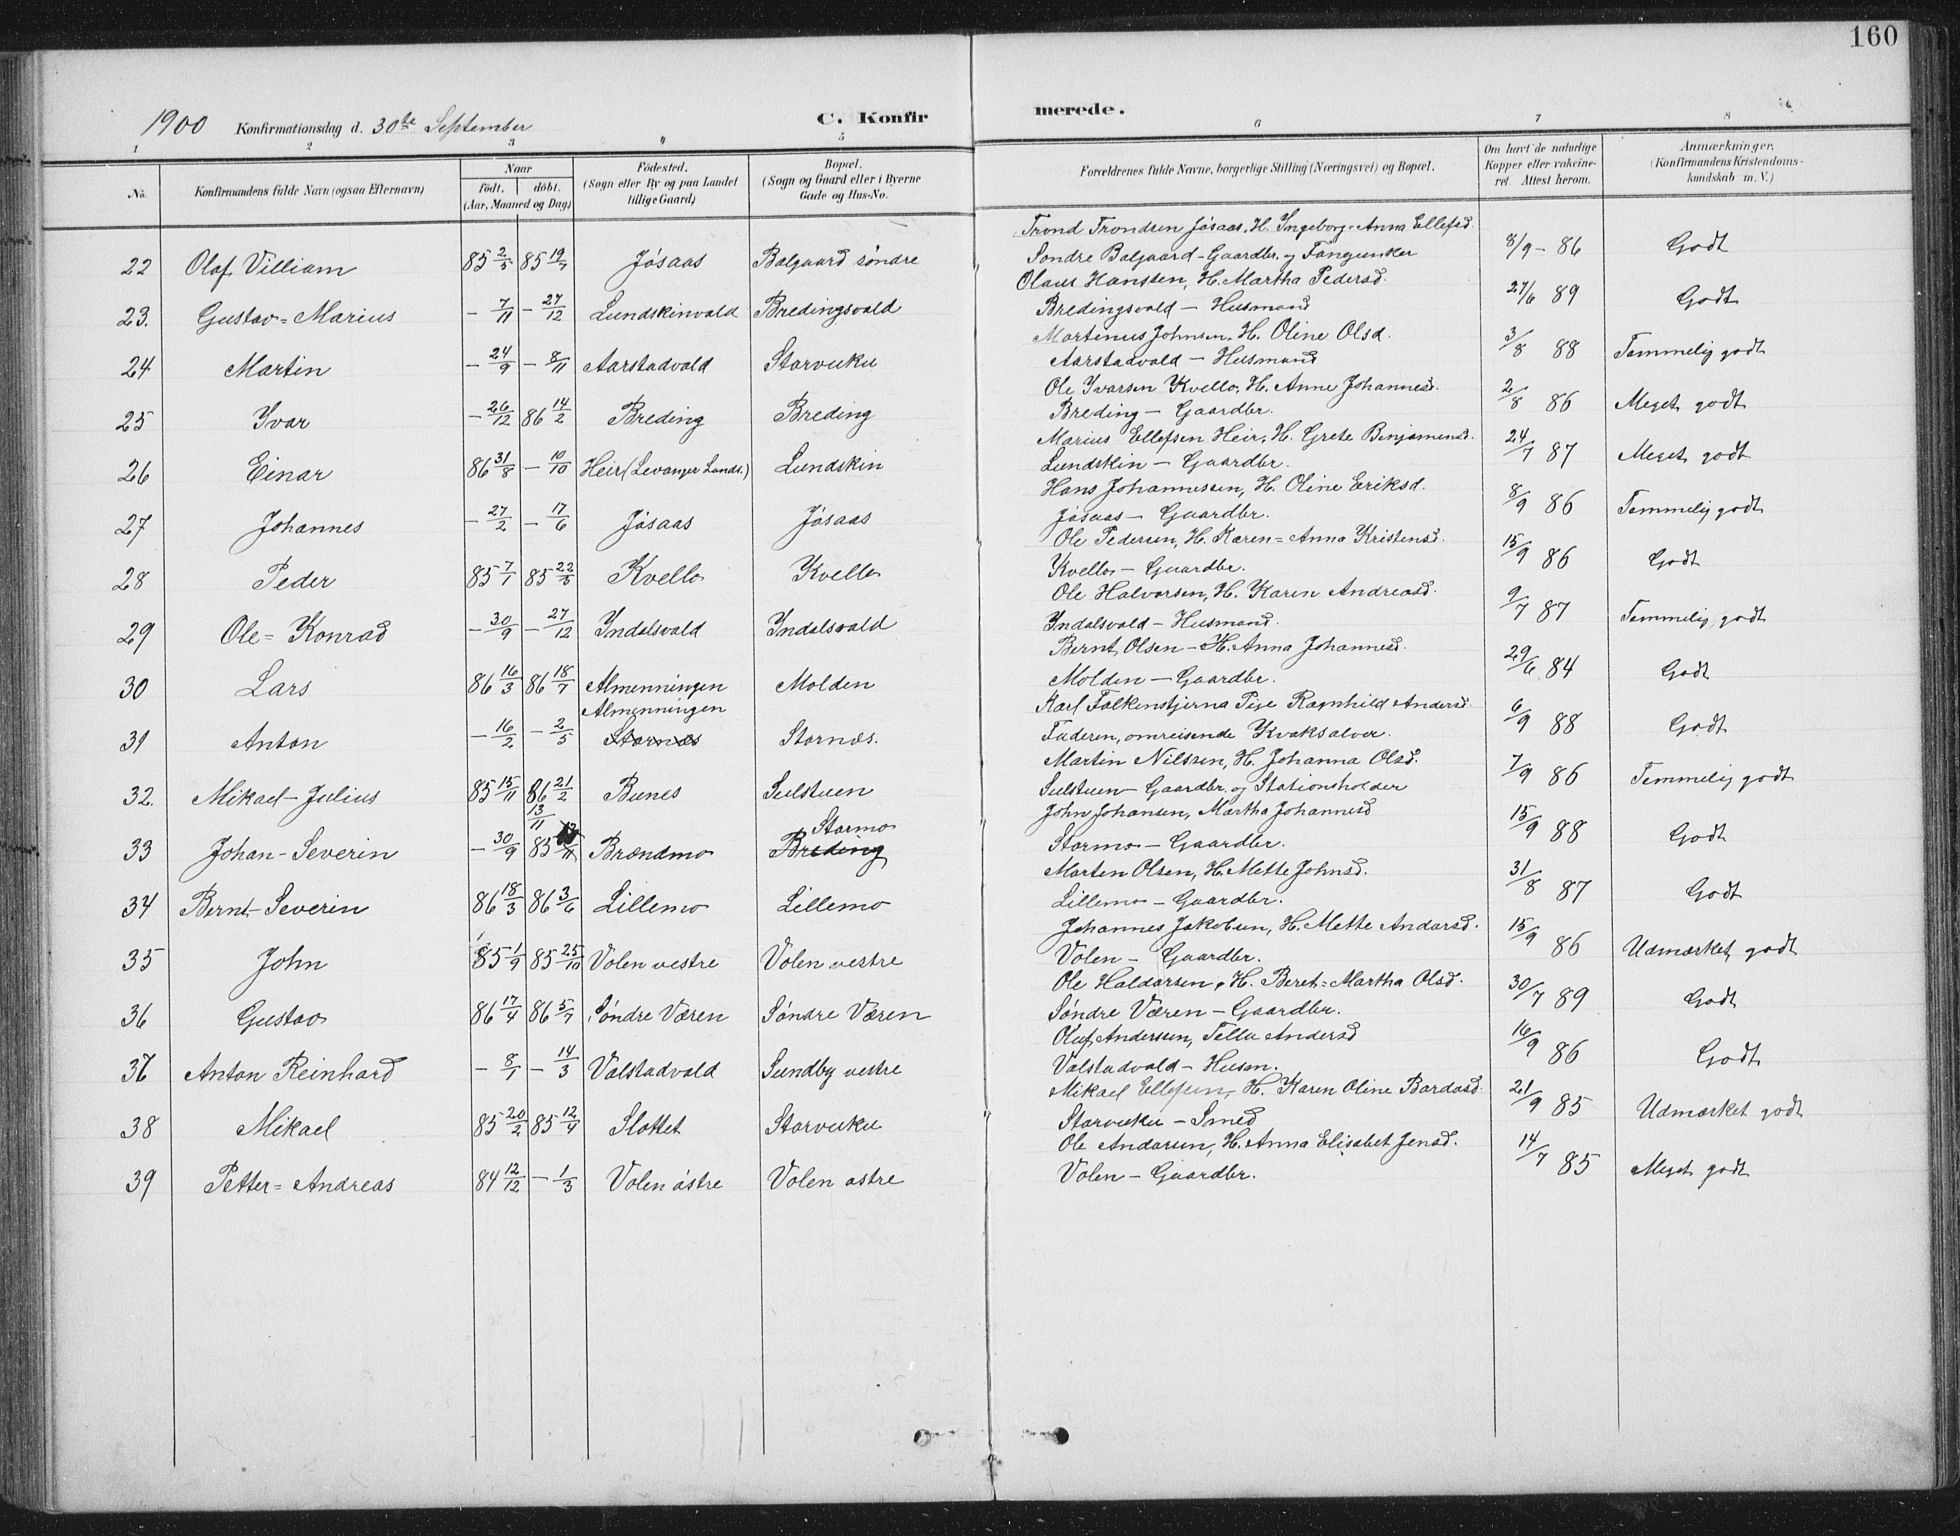 160
1900 Konfirmationsdag d. 30te September C. Konfirmerede.
1 2 3 4 5 6 7 8
No. Konfirmandens fulde Navn (ogsaa Efternavn) Naar födt. döbt. (Aar, Maaned og Dag) Födested. (Sogn eller By og paa Landet tillige Gaard) Bopæl. (Sogn og Gaard eller i Byerne Gade og Hus-No. Forældrenes fulde Navne, borgerlige Stilling (Næringsvei) og Bopæl. Om havt de naturlige Kopper eller vakcineret. Attest herom. Anmærkninger. (Konfirmandens Kristendomskundskab m. V.)
Trond Trondsen Jøsaas, H. Ingeborg-Anna Ellefsd.
22 Olaf Villiam 85 2/5 85 19/7 Jøsaas Balgaard søndre Søndre Balgaard - Gaardbr. og Fangjunker 8/9 - 86 Godt
Olaus Hanssen, H. Martha Pedersd.
23. Gustav=Marius - 7/11 - 27/12 Lundskinvald Bredingsvald Bredingsvald - Husmand 27/6 89 Godt
Martinus Johnsen, H. Oline Olsd.
24 Martin - 24/9 - 8/11 Aarstadvald Storvuku Aarstadvald - Husmand 3/8 88 Temmelig godt
Ole Ivarsen Kvello, H. Anne Johannesd.
25 Ivar - 26/12 86 14/2 Breding Breding Breding - Gaardbr. 2/8 86 Meget godt
Marius Ellefsen Heir, H. Grete Benjamensd.
26 Einar 86 31/8 - 10/10 Heir (Levanger Lands.) Lundskin Lundskin - Gaardbr. 24/7 87 Meget godt
Hans Johannessen, H. Oline Eriksd.
27 Johannes - 27/2 - 17/6 Jøsaas Jøsaas Jøsaas - Gaardbr. 8/9 86 Temmelig godt
Ole Pedersen, H. Karen=Anna Kristensd.
28 Peder 85 7/1 85 22/3 Kvello Kvello Kvello - Gaardbr. 15/9 86 Godt
Ole Halvorsen, H. Karen Andreasd.
29 Ole=Konrad - 30/9 - 27/12 Indalsvald Indalsvald Indalsvald - Husmand. 9/7 87 Temmelig godt
Bernt Olsen - H. Anna Johannesd.
30 Lars 86 16/3 86 18/7 Almenningen Molden Molden - Gaardbr. 29/6 84 Godt
Almenningen Karl Falkenstjerna Pige Ragnhild Andersd.
31 Anton - 16/2 - 2/5 Stornæs Stornæs. Faderen, omreisende Kvaksalver. 6/9 88 Godt
Martin Nilssen, H. Johanna Olsd.
32. Mikael-Julius 85 15/11 86 21/2 Bunes Sulstuen Sulstuen - Gaardbr. og Stationsholder 7/9 86 Temmelig godt
13/11 Stormo John Johansen, Martha Johannesd
33 Johan-Severin - 30/9 85 Brændmo Breding Stormo - Gaardbr. 15/9 88 Godt
Morten Olsen, H. Mette Johnsd.
34 Bernt-Severin 86 18/3 86 3/6 Lillemo Lillemo Lillemo - Gaardbr. 31/8 87 Godt
Johannes Jakobsen, H. Mette Andersd.
35 John 85 1/9 85 25/10 Volen vestre Volen vestre Volen - Gaardbr. 15/9 86 Udmærket godt
Ole Haldorsen, H. Beret=Martha Olsd.
36 Gustav 86 17/4 86 5/7 Søndre Væren Søndre Væren Søndre Væren - Gaardbr. 30/7 89 Godt
Oluf Anderssen, Tella Andersd
37 Anton Reinhard - 8/1 - 14/3 Valstadvald Sundby vestre Valstadvald - Husm. 16/9 86 Godt
Mikael Ellefsen, H. Karen Oline Bardosd.
38 Mikael 85 20/2 85 12/4 Slottet Storvuku Storvuku - Smed 21/9 85 Udmærket godt
Ole Andersen, H. Anna Elisabet Jensd.
39 Petter=Andreas 84 12/12 - 1/3 Volen østre Volen østre Volen - Gaardbr. 14/7 85 Meget godt